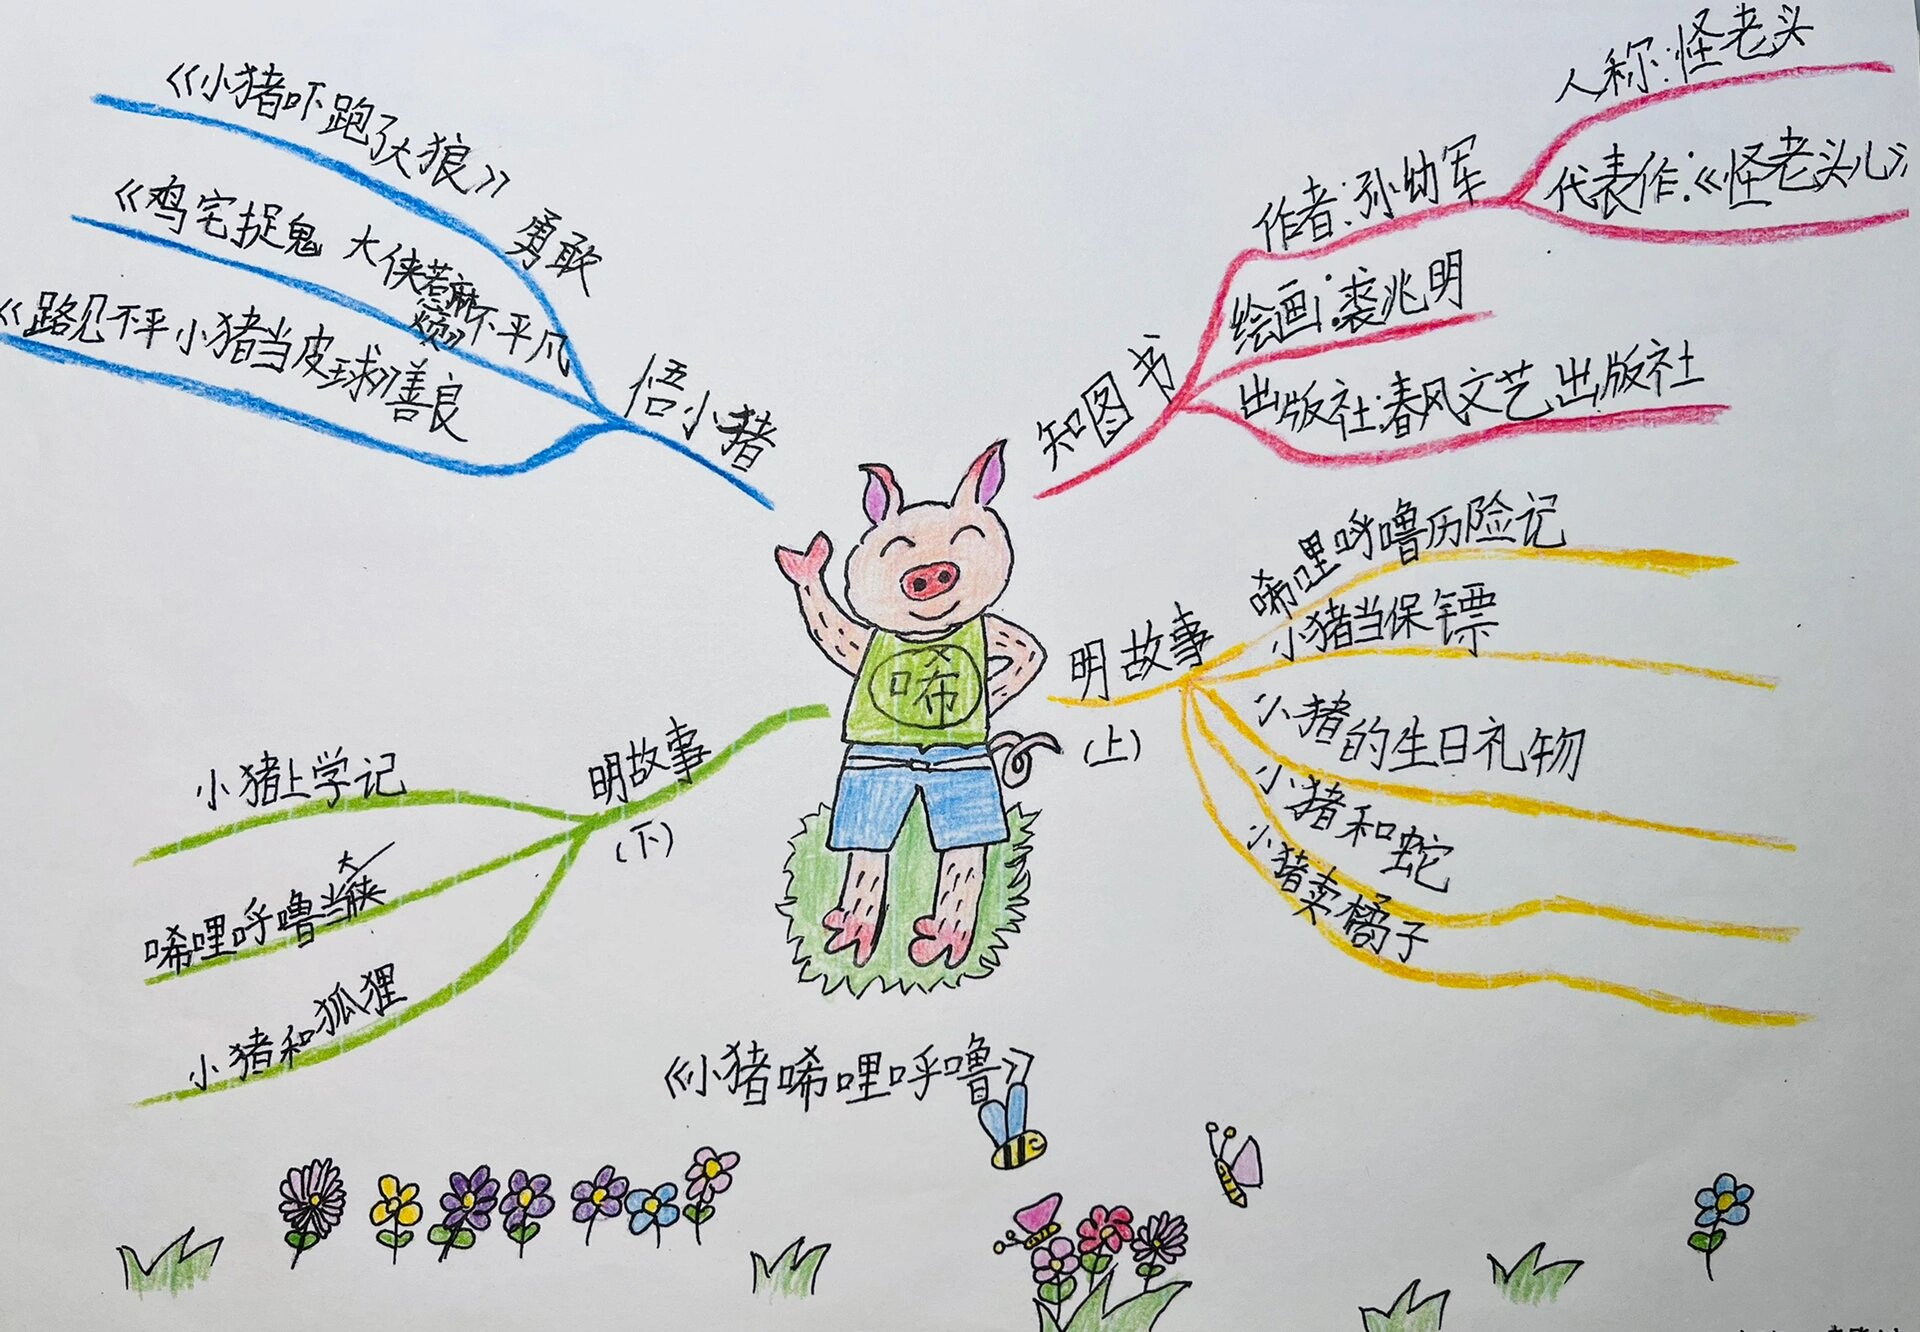 《小猪吓跑了大狼》勇敢
《鸡宅捉鬼 大侠惹麻烦》不平凡
《路见不平 小猪当皮球》善良
悟小猪
人称:怪老头
代表作:《怪老头儿》
作者:孙幼军
绘画:裘兆明
出版社:春风文艺出版社
知图书
唏哩呼噜历险记
小猪当保镖
小猪的生日礼物
小猪和蛇
小猪卖橘子
明故事
(上)
唏
明故事
(下)
小猪上学记
唏哩呼噜当大侠
小猪和狐狸
《小猪唏哩呼噜》